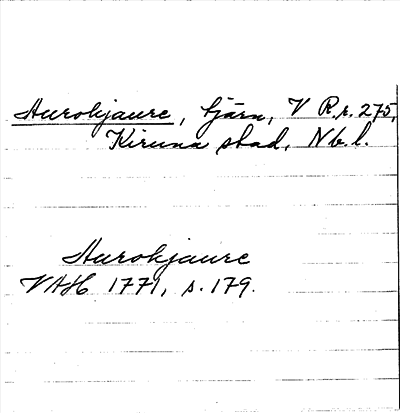 Aurokjaure, tjärn, V R.r. 275,
Kiruna stad, Nb.l.
Aurokjaure
VAH 1771, s. 179.